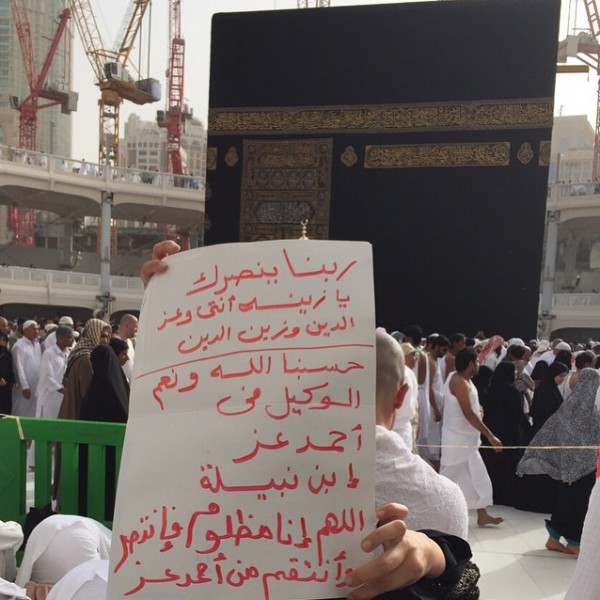 ربنا بينصرك
يا زينه أنتى وعز
الدين وزين الدين
حسبنا الله ونعم
الوكيل فى
أحمد عز
إبن نبيلة
اللهم إنا مظلوم فإنتصر
وأنتقم من أحمد عز